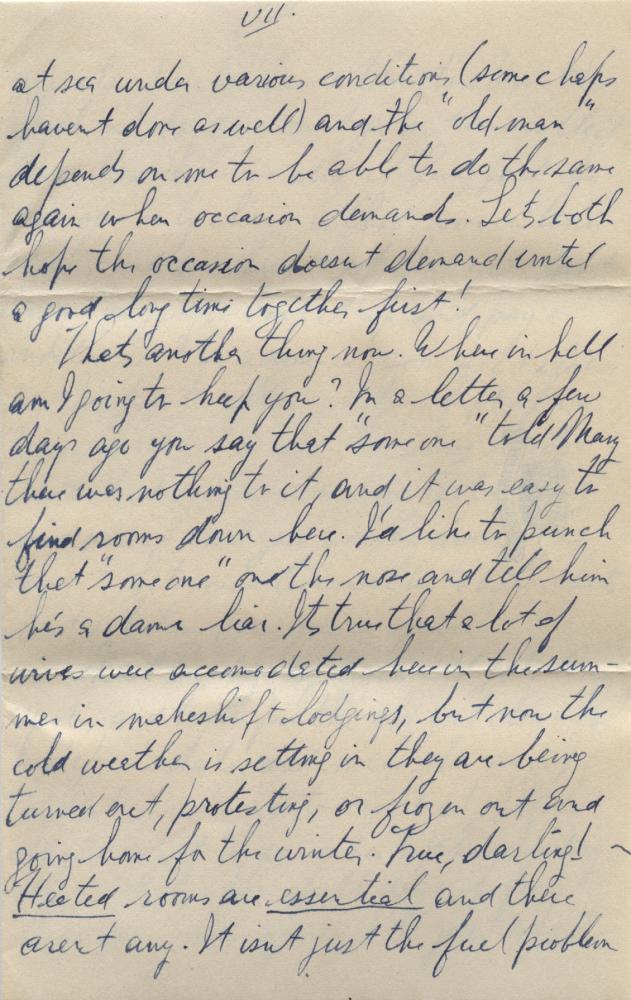 VII.
at sea under various conditions (some chaps
havent done as well) and the "old man"
depends on me to be able to do the same
again when occasion demands. Lets both
hope the occasion doesnt demand until
a good long time together first!
Thats another thing now. Where in hell
am I going to keep you? In a letter a few
days ago you say that "someone" told Mary
there was nothing to it, and it was easy to
find rooms down here. I'd like to punch
that "someone" on the nose and tell him
he's a damn liar. Its true that a lot of
wives were accomodated here in the sum-
mer in makeshift lodgings, but now the
cold weather is setting in they are being
turned out, protesting, or frozen out and
going home for the winter. True, darling!
Heated rooms are essential and there
arent any. It isnt just the fuel problem